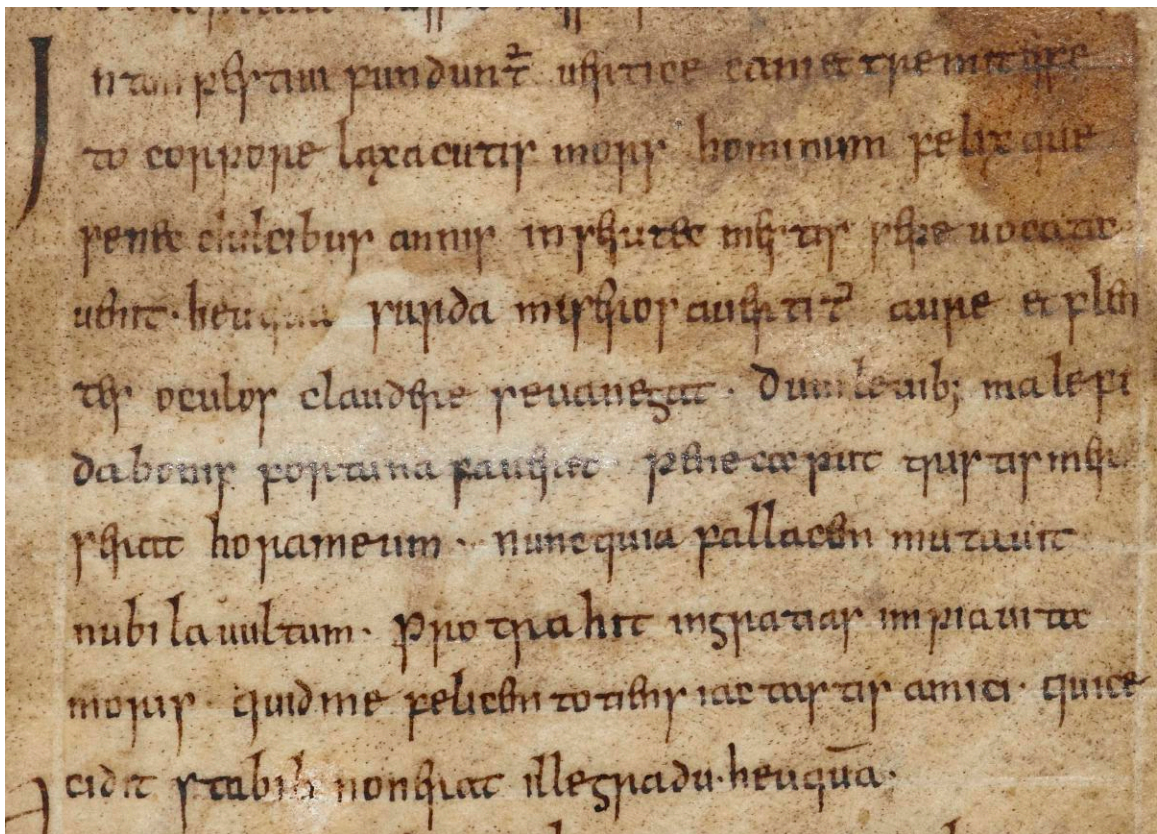 Intempestiui fundunt̄ uertice cani et tremit effe
to corpore laxa cutis mors hominum felix que
se nec dulcibus annis inseruit et mestis sepe uocata
uenit · heu qua surda miseros auertit̄ aure et flen
tes oculos claudere seua negat · Dum leuib; male fi
da bonis fortuna faueret pene caput tristis mer
serat hora meum · nunc quia fallacem mutauit
nubila uultum · Protrahit ingratas impia uita
moras · quid me felicem totiens iactastis amici · qui ce
cidit stabili non erat ille gradu · heu quā ·